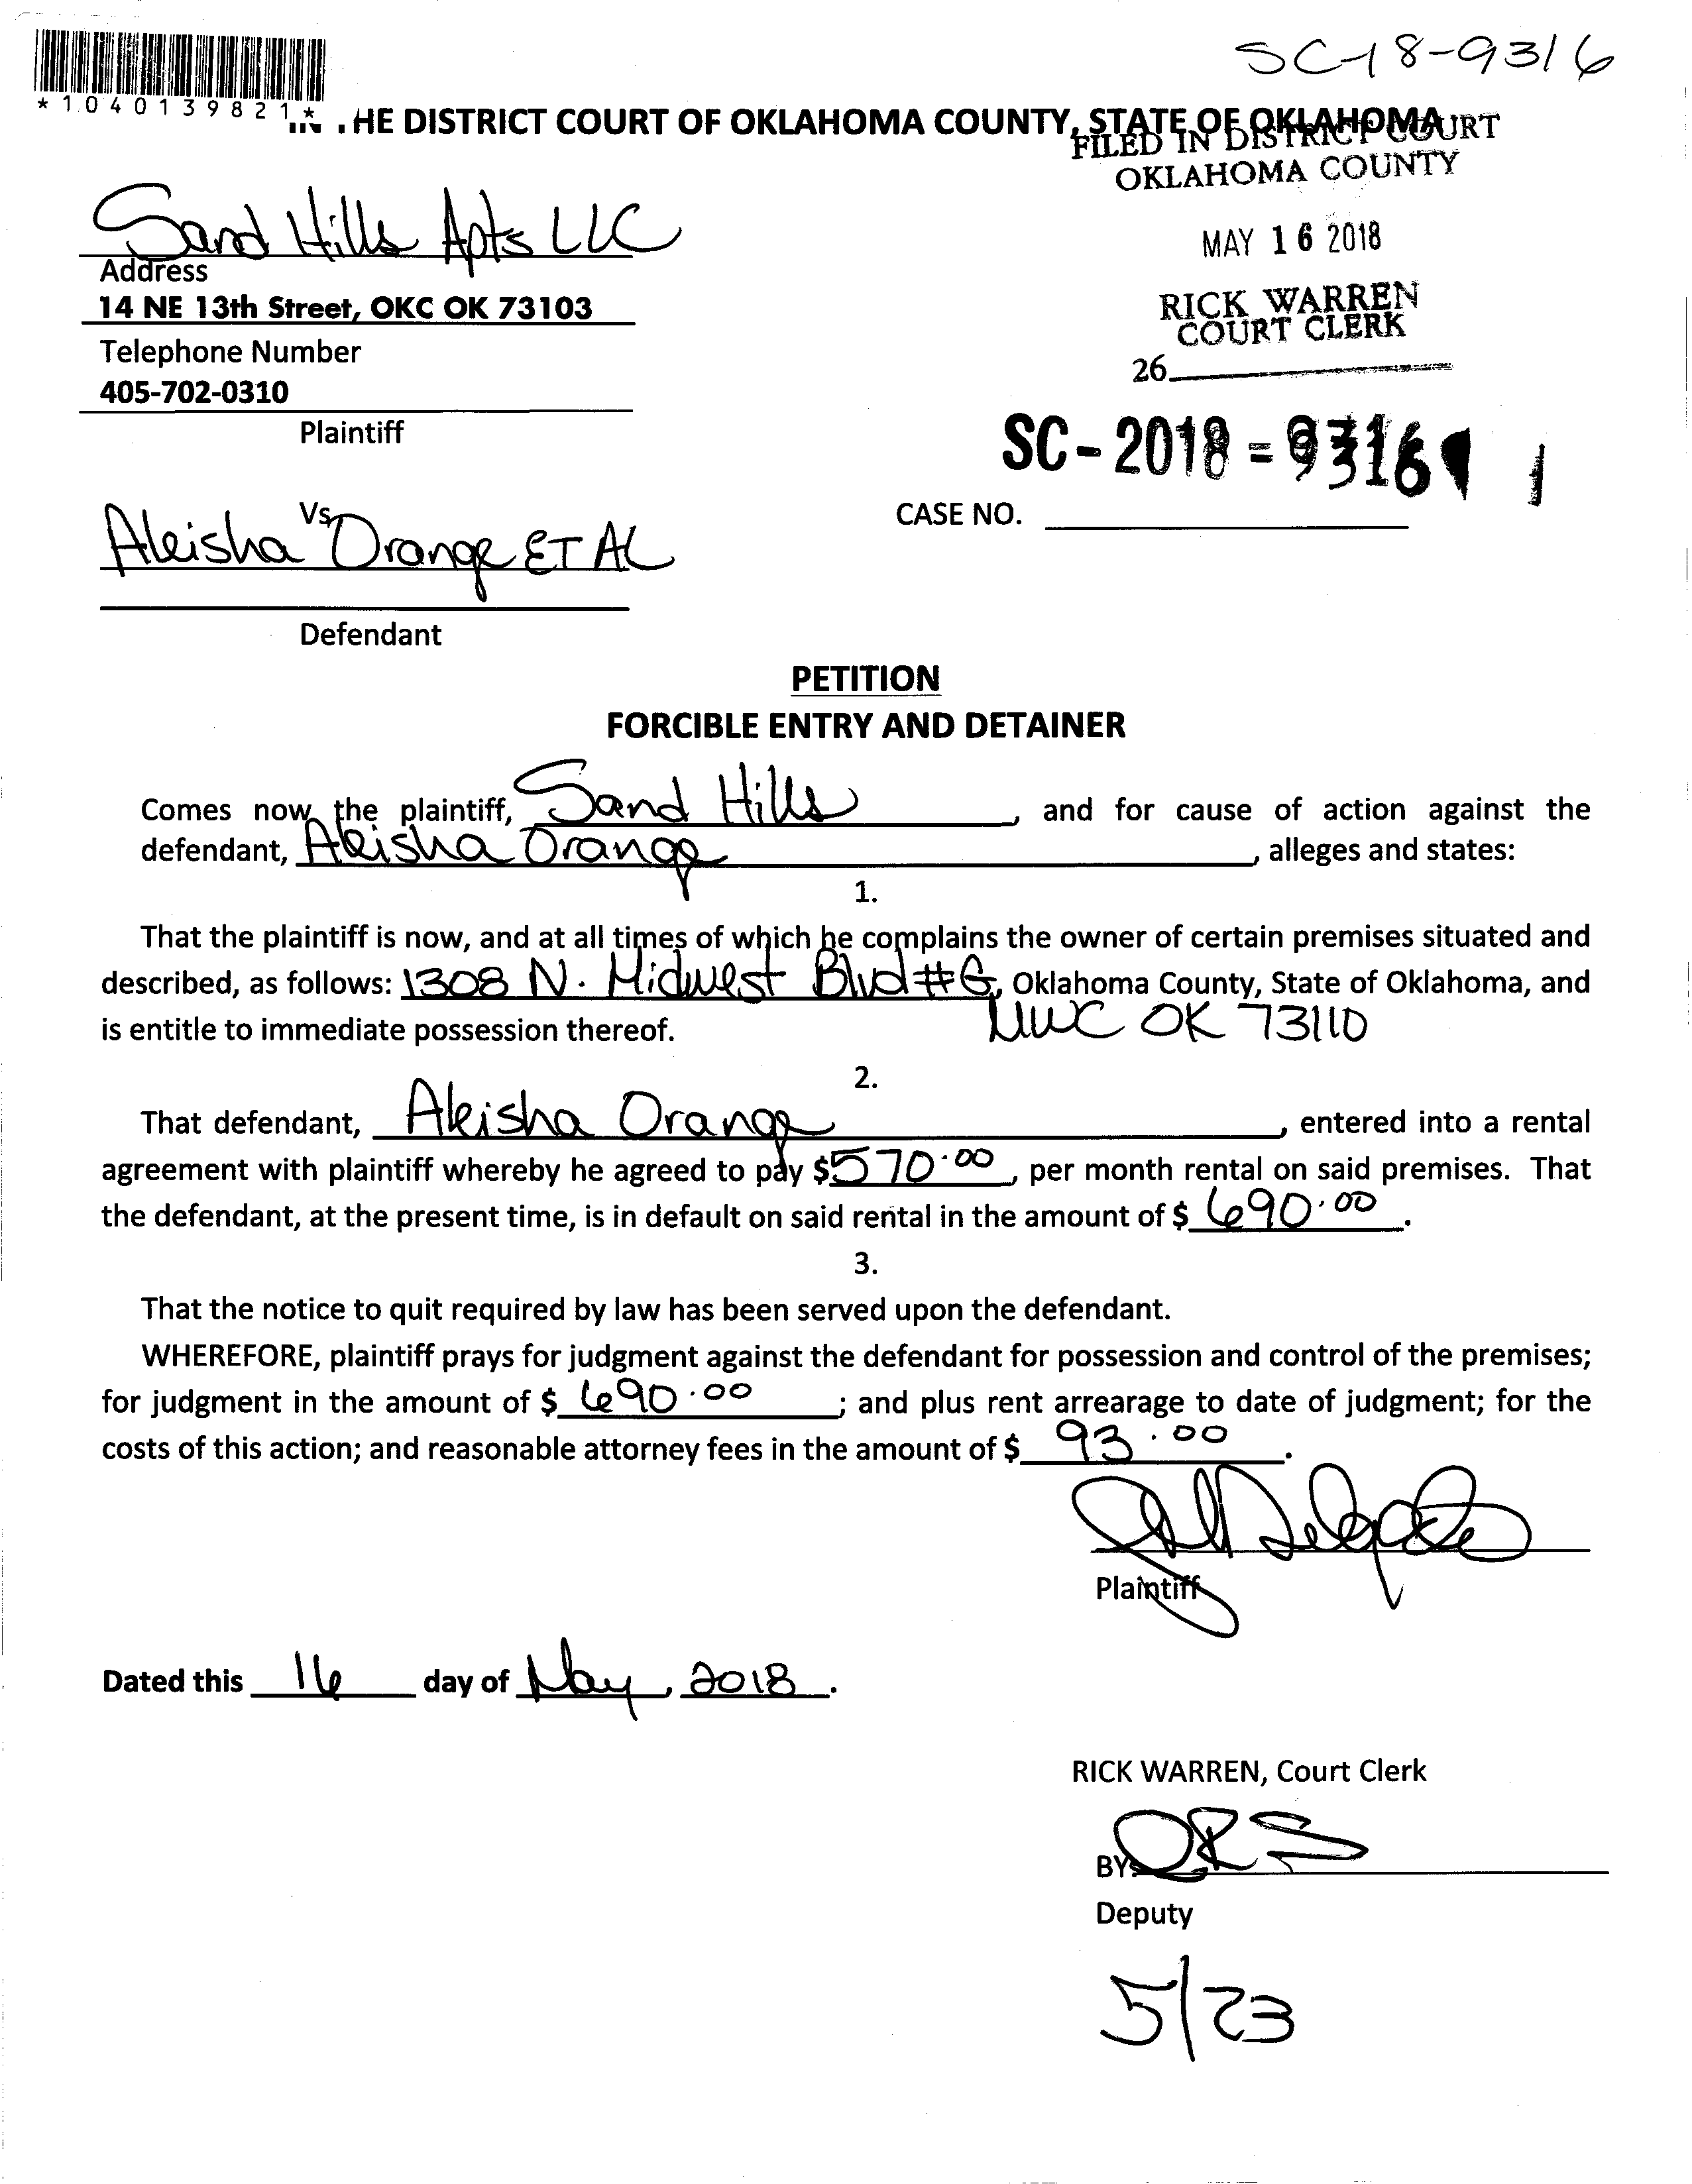 SC-18-9316
*1040139821*
THE DISTRICT COURT OF OKLAHOMA COUNTY, STATE OF OKLAHOMA
FILED IN DISTRICT COURT
OKLAHOMA COUNTY
Sand Hills Apts LLC
MAY 16 2018
Address
14 NE 13th Street, OKC OK 73103
RICK WARREN
COURT CLERK
Telephone Number
26
405-702-0310
Plaintiff
SC-2018-9316
Vs
CASE NO.
Aleisha Orange ET AL
Defendant
PETITION
FORCIBLE ENTRY AND DETAINER
Comes now the plaintiff, Sand Hills, and for cause of action against the
defendant, Aleisha Orange, alleges and states:
1.
That the plaintiff is now, and at all times of which he complains the owner of certain premises situated and
described, as follows: 1308 N. Midwest Blvd #G, Oklahoma County, State of Oklahoma, and
is entitle to immediate possession thereof. MWC OK 73110
2.
That defendant, Aleisha Orange, entered into a rental
agreement with plaintiff whereby he agreed to pay $570.00, per month rental on said premises. That
the defendant, at the present time, is in default on said rental in the amount of $690.00.
3.
That the notice to quit required by law has been served upon the defendant.
WHEREFORE, plaintiff prays for judgment against the defendant for possession and control of the premises;
for judgment in the amount of $690.00; and plus rent arrearage to date of judgment; for the
costs of this action; and reasonable attorney fees in the amount of $93.00.
Plaintiff
Dated this 16 day of May, 2018.
RICK WARREN, Court Clerk
BY:
Deputy
5/23